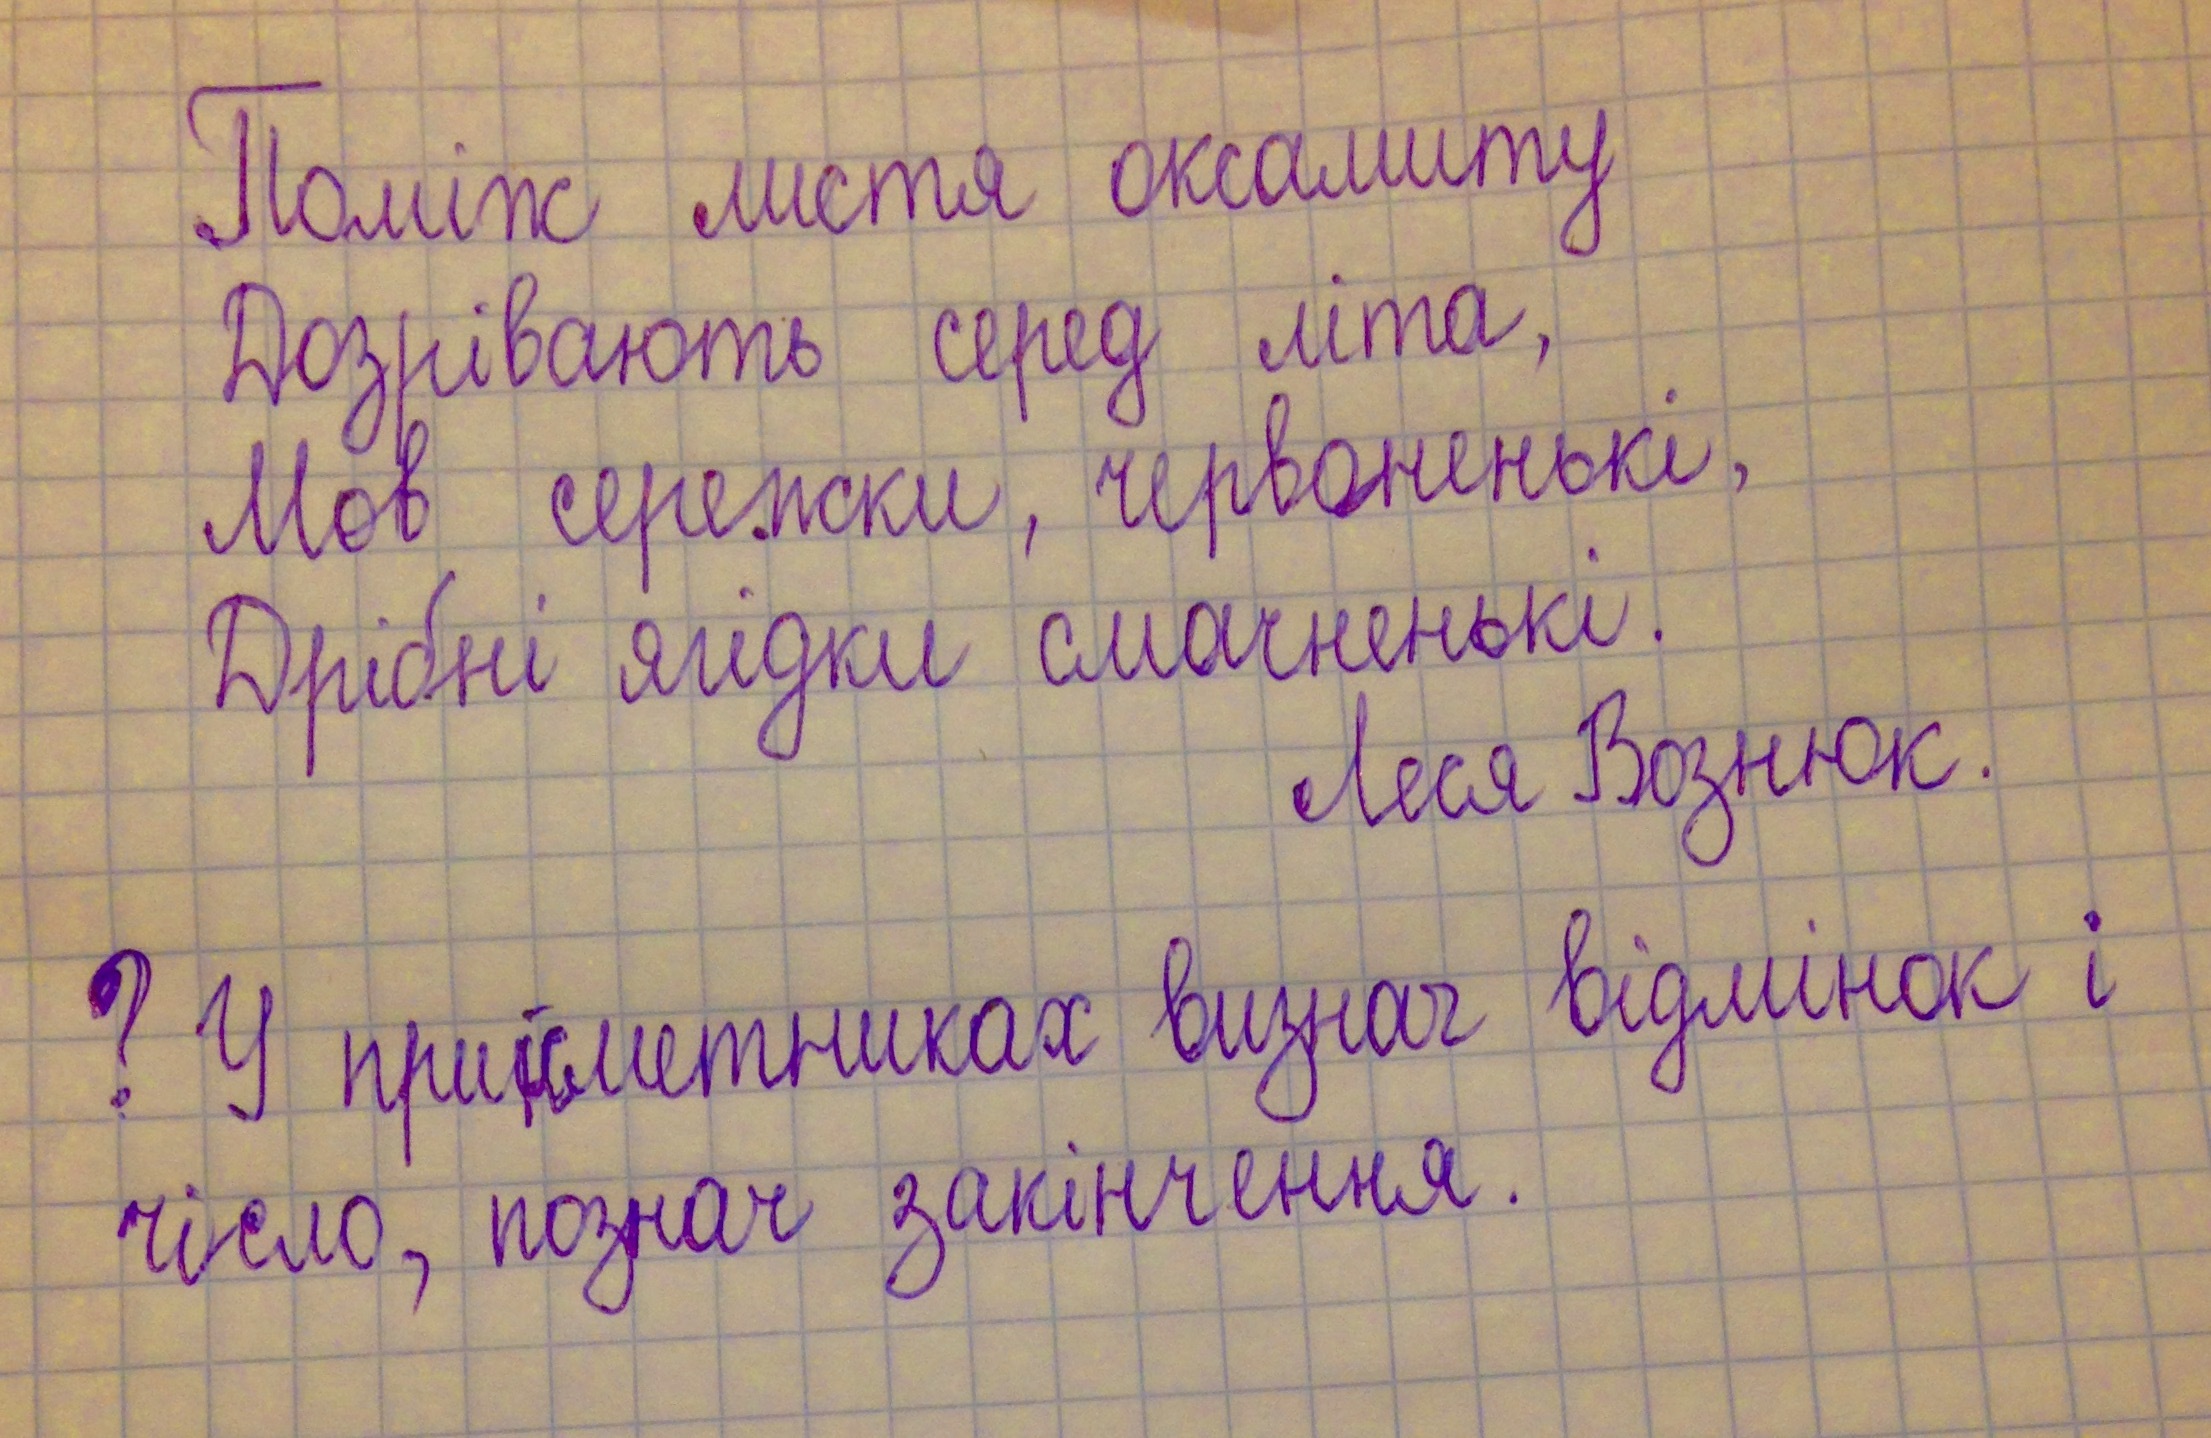 Поміж листя оксамиту
Дозрівають серед літа,
Мов сережки, червоненькі,
Дрібні ягідки смачненькі.
Леся Вознюк.
? У прикметниках визнач відмінок і
число, познач закінчення.